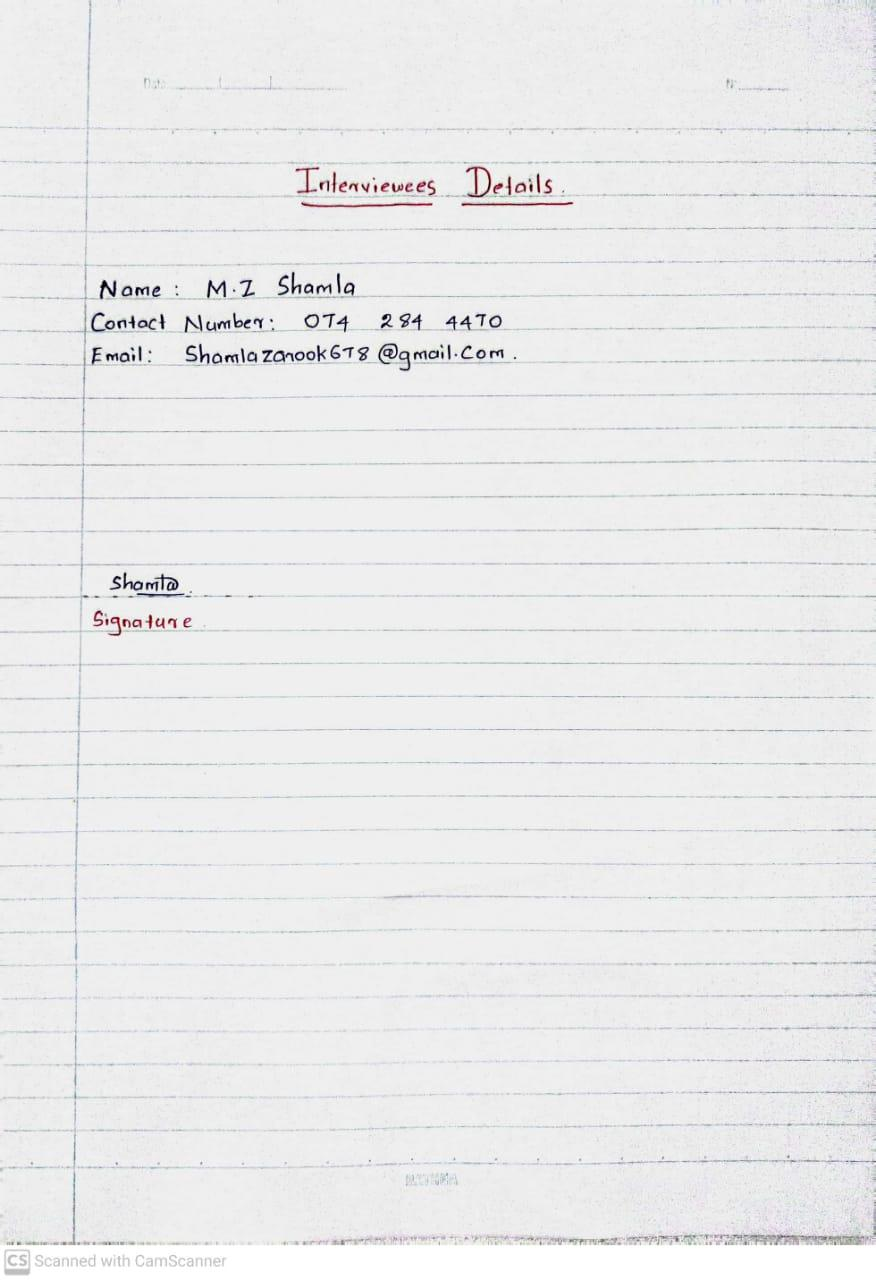 Date
No
Interviewees Details.
Name : M.Z Shamla
Contact Number: 074 284 4470
Email: Shamlazarook678@gmail.com.
Shamla
Signature
CS Scanned with CamScanner